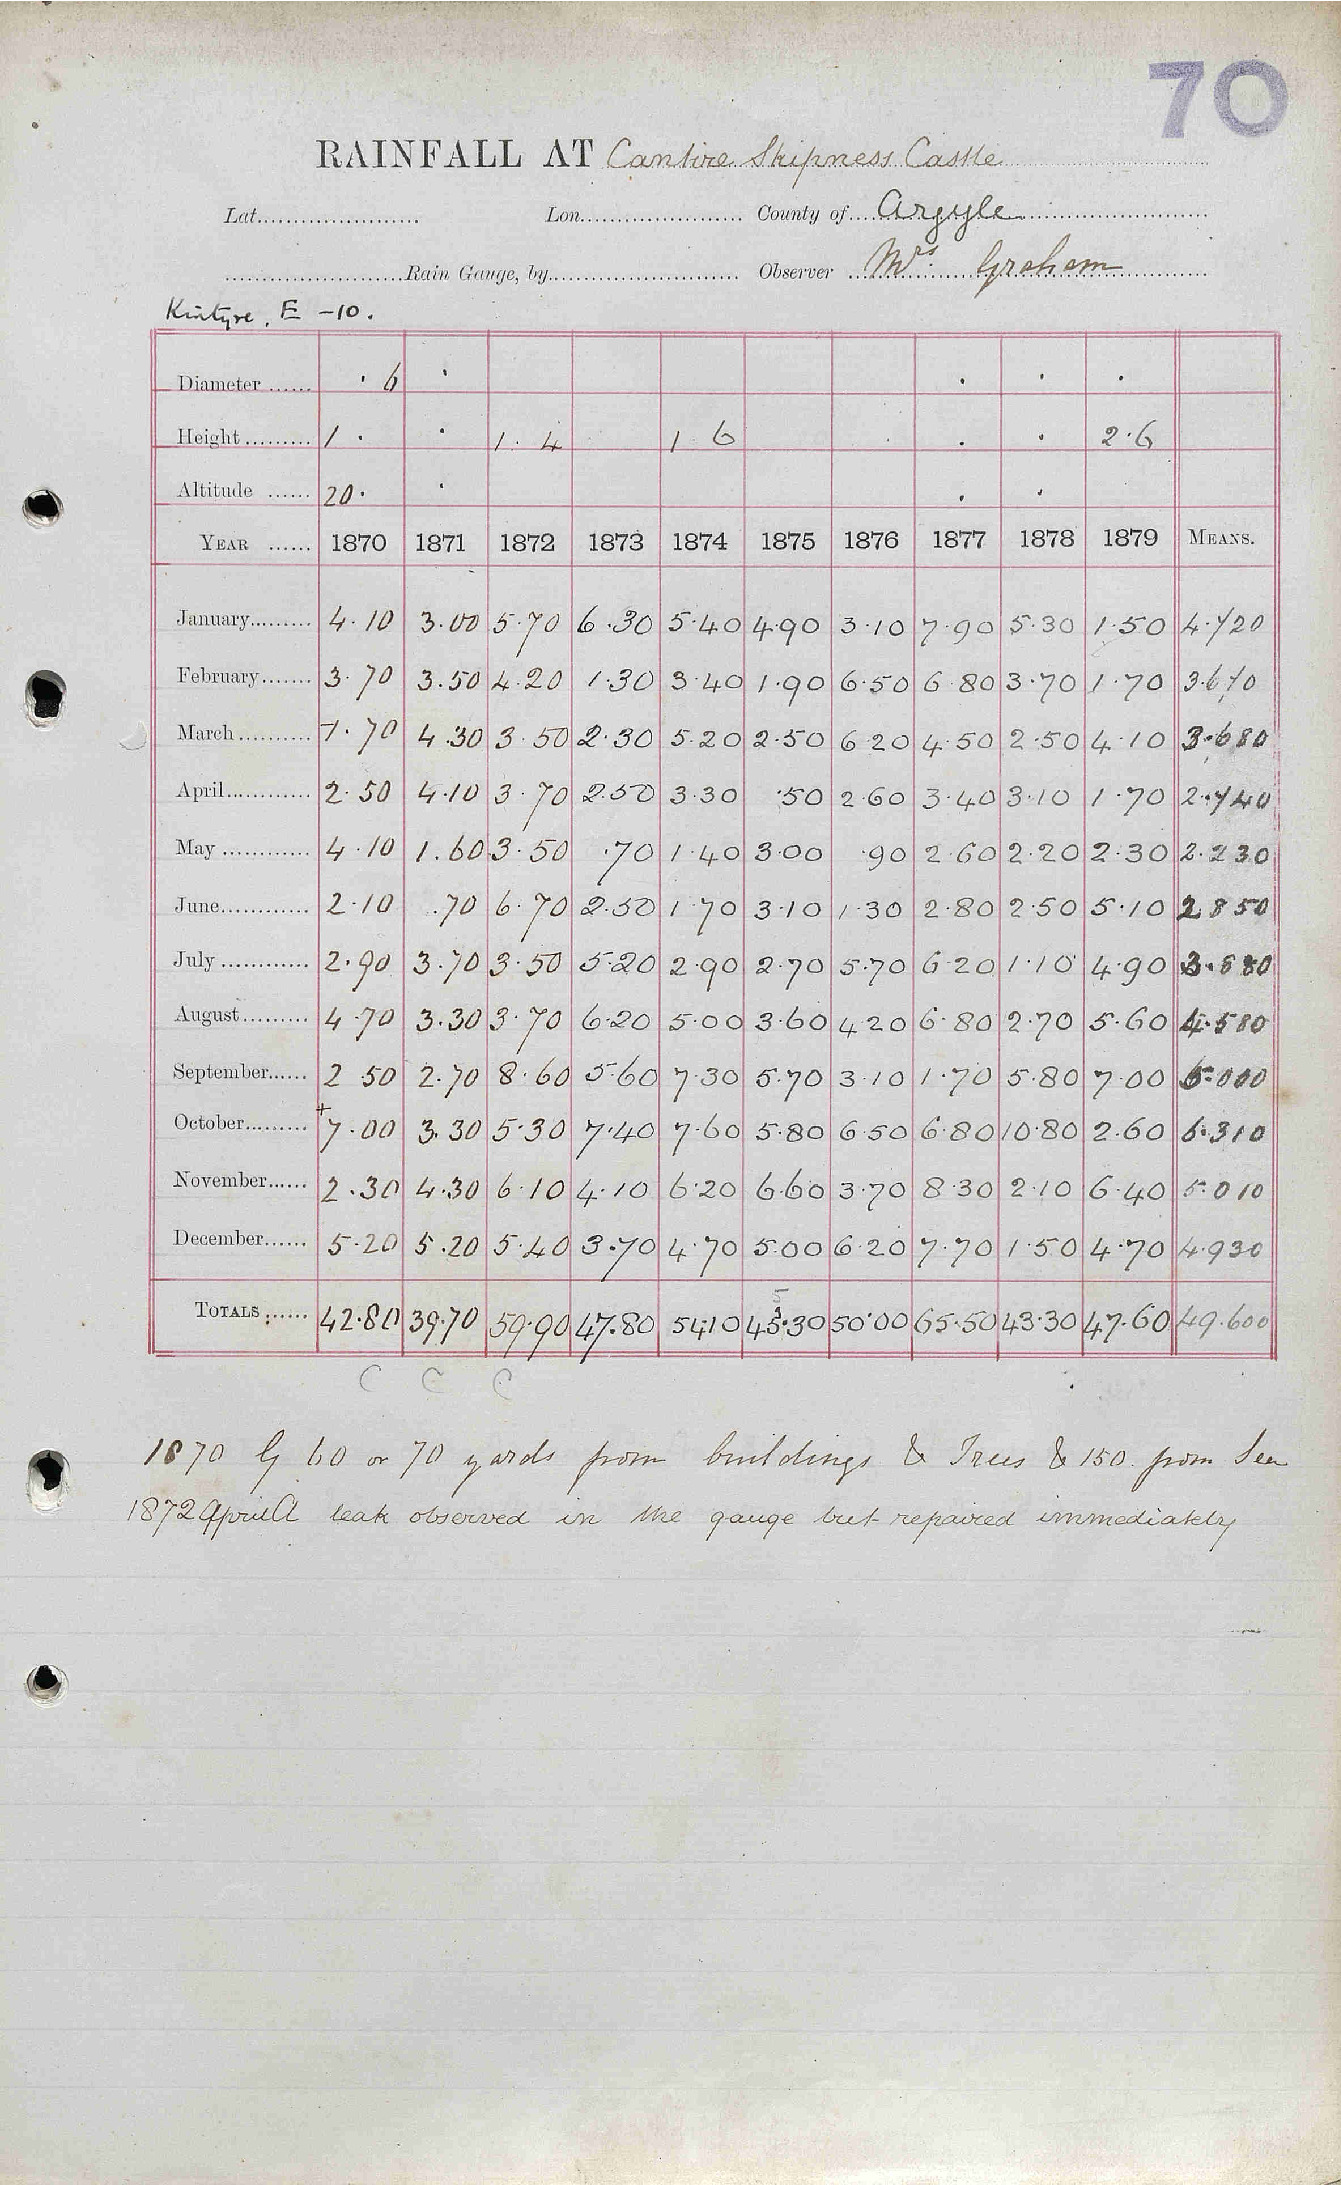 70
RAINFALL AT Cantire Skipness Castle
Lat. Lon. County of Argyle
Rain Gauge, by Observer Mrs Graham
Kintyre. E -10.
Diameter ...... · 6
Height ......... 1 · 1. 4 1 6 2·6
Altitude ...... 20·
YEAR ...... 1870 1871 1872 1873 1874 1875 1876 1877 1878 1879 MEANS.
January......... 4.10 3.00 5.70 6.30 5.40 4.90 3.10 7.90 5.30 1.50 4.720
February....... 3.70 3.50 4.20 1.30 3.40 1.90 6.50 6.80 3.70 1.70 3.670
March.......... 1.70 4.30 3.50 2.30 5.20 2.50 6.20 4.50 2.50 4.10 3.680
April............ 2.50 4.10 3.70 2.50 3.30 .50 2.60 3.40 3.10 1.70 2.740
May ............ 4.10 1.60 3.50 .70 1.40 3.00 .90 2.60 2.20 2.30 2.230
June............ 2.10 .70 6.70 2.50 1.70 3.10 1.30 2.80 2.50 5.10 2.850
July ............ 2.90 3.70 3.50 5.20 2.90 2.70 5.70 6.20 1.10 4.90 3.880
August......... 4.70 3.30 3.70 6.20 5.00 3.60 4.20 6.80 2.70 5.60 4.580
September...... 2.50 2.70 8.60 5.60 7.30 5.70 3.10 1.70 5.80 7.00 5.000
October......... +7.00 3.30 5.30 7.40 7.60 5.80 6.50 6.80 10.80 2.60 6.310
November...... 2.30 4.30 6.10 4.10 6.20 6.60 3.70 8.30 2.10 6.40 5.010
December...... 5.20 5.20 5.40 3.70 4.70 5.00 6.20 7.70 1.50 4.70 4.930
5
TOTALS ...... 42.80 39.70 59.90 47.80 54.10 45.30 50.00 65.50 43.30 47.60 49.600
C C C
1870 G 60 or 70 yards from buildings & Trees & 150 from Sea
1872 April A leak observed in the gauge but repaired immediately